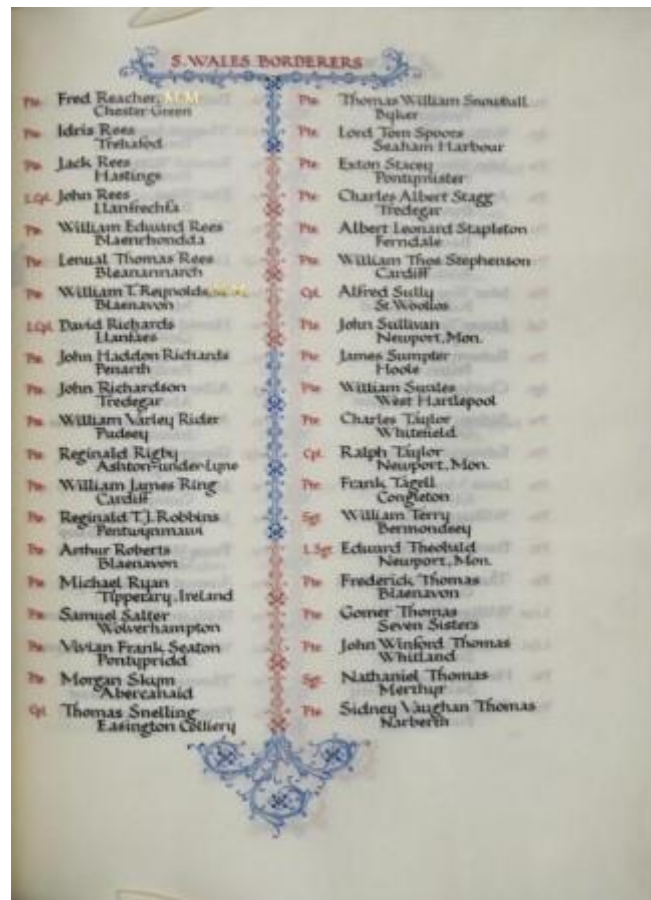 S. WALES BORDERERS
Pte. Fred Reacher, M.M.
Chester Green
Pte. Idris Rees
Trehafod
Pte. Jack Rees
Hastings
L.Cpl. John Rees
Llanfrechfa
Pte. William Edward Rees
Blaenrhondda
Pte. Lenual Thomas Rees
Bleanannarch
Pte. William T. Reynolds, M.M.
Blaenavon
L.Cpl. David Richards
Llanfaes
Pte. John Haddon Richards
Penarth
Pte. John Richardson
Tredegar
Pte. William Varley Rider
Pudsey
Pte. Reginald Rigby
Ashton-under-Lyne
Pte. William James Ring
Cardiff
Pte. Reginald T.J. Robbins
Pentwynmawr
Pte. Arthur Roberts
Blaenavon
Pte. Michael Ryan
Tipperary, Ireland
Pte. Samuel Salter
Wolverhampton
Pte. Vivian Frank Seaton
Pontypridd
Pte. Morgan Skym
Abercanaid
Cpl. Thomas Snelling
Easington Colliery
Pte. Thomas William Snowball
Byker
Pte. Lord Tom Spoors
Seaham Harbour
Pte. Exton Stacey
Pontymister
Pte. Charles Albert Stagg
Tredegar
Pte. Albert Leonard Stapleton
Ferndale
Pte. William Thos Stephenson
Cardiff
Cpl. Alfred Sully
St. Woollos
Pte. John Sullivan
Newport, Mon.
Pte. James Sumpter
Hoole
Pte. William
West Hartlepool
Pte. Charles Taylor
Whitefield
Cpl. Ralph Taylor
Newport, Mon.
Pte. Frank Tagell
Congleton
Sgt. William Terry
Bermondsey
L.Sgt. Edward Theobald
Newport, Mon.
Pte. Frederick Thomas
Blaenavon
Pte. Gomer Thomas
Seven Sisters
Pte. John Winford Thomas
Whitland
Sgt. Nathaniel Thomas
Merthyr
Pte. Sidney Vaughan Thomas
Narberth